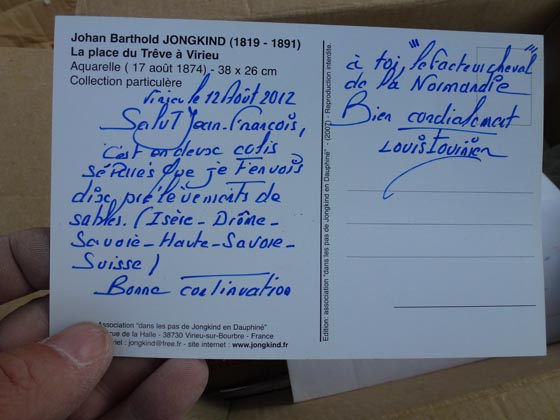 Johan Barthold JONGKIND (1819 - 1891)
La place du Trêve à Virieu
Aquarelle ( 17 août 1874) - 38 x 26 cm
Collection particulère
Virieu le 12 Août 2012
Salut Jean-François,
C'est en deux colis
séparés que je t'envois
dix prélèvements de
sables. (Isère - Drôme -
Savoie - Haute-Savoie -
Suisse)
Bonne continuation
à toi, "le facteur cheval"
de la Normandie
Bien cordialement
Louis Tournier
Edition: association "dans les pas de Jongkind en Dauphiné" - (2007) - Reproduction interdite.
Association "dans les pas de Jongkind en Dauphiné"
rue de la Halle - 38730 Virieu-sur-Bourbre - France
riel : jongkind@free.fr - site internet : www.jongkind.fr